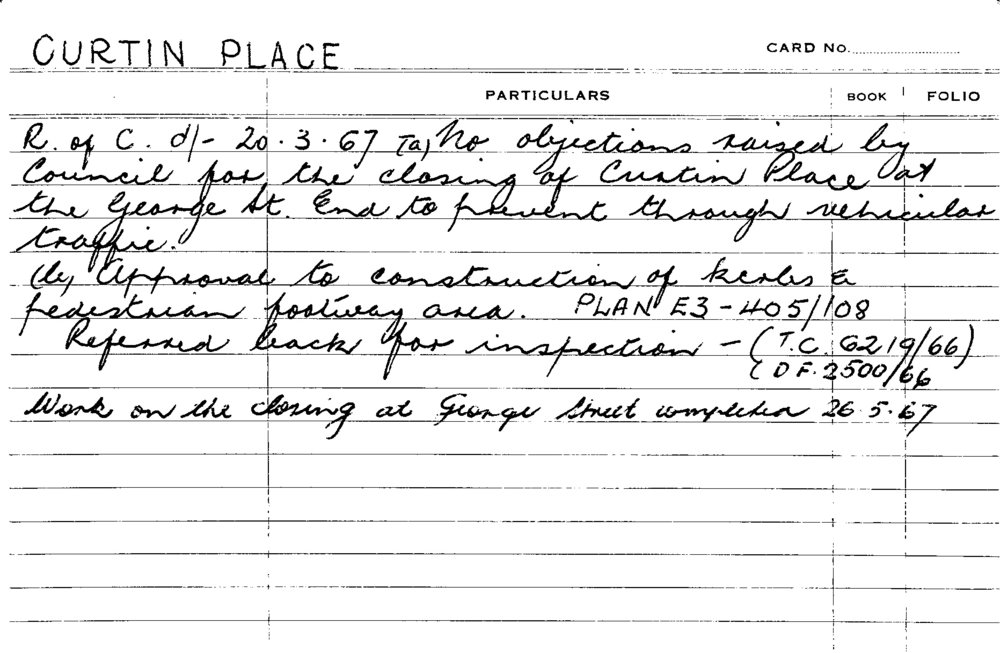 CURTIN PLACE
CARD No.
PARTICULARS BOOK FOLIO
R. of C. d/- 20.3.67 (a) No objections raised by
Council for the closing of Curtin Place at
the George St. End to prevent through vehicular
traffic.
(b) Approval to construction of kerbs &
pedestrian footway area. PLAN E3-405/108
Referred back for inspection - (T.C. 6219/66)
(D F. 2500/66
Work on the closing at George Street completed 26.5.67